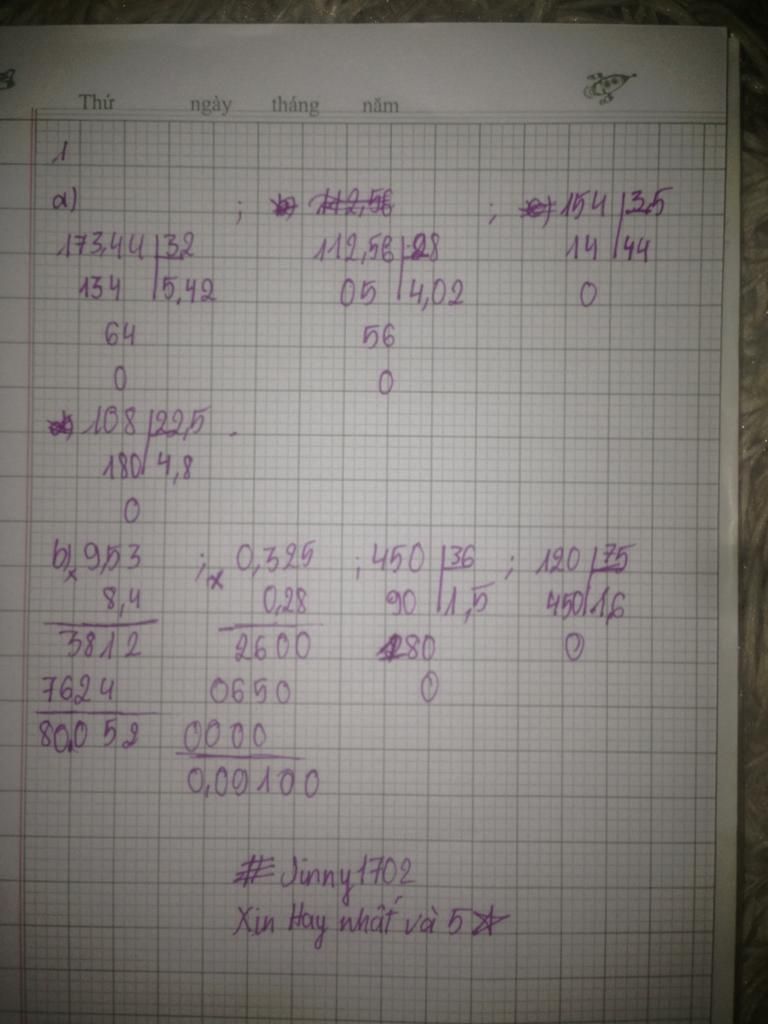 Thứ ngày tháng năm
1
a) ; ;
173,44 32 112,56 28 154 3,5
134 5,42 05 4,02 14 44
64 56 0
0 0
108 22,5
180 4,8
0
b) 9,53 ; 0,325 ; 450 36 ; 120 75
x 8,4 x 0,28 90 1,5 450 1,6
3812 2600 180 0
7624 0650 0
80,052 0000
0,09100
#Jinny1702
Xin Hay nhất và 5☆